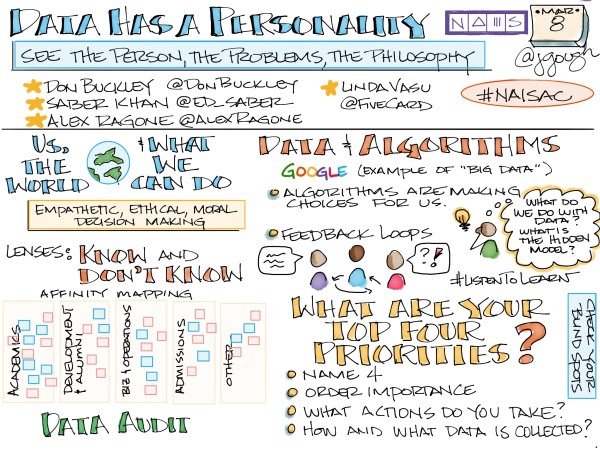 DATA HAS A PERSONALITY
NAIS
MAR.
8
SEE THE PERSON, THE PROBLEMS, THE PHILOSOPHY
@jgough
DON BUCKLEY @DONBUCKLEY
SABER KHAN @ED_SABER
ALEX RAGONE @ALEXRAGONE
LINDA VASU
@FIVECARD
#NAISAC
US,
THE
WORLD
& WHAT
WE
CAN DO
EMPATHETIC, ETHICAL, MORAL
DECISION MAKING
LENSES: KNOW AND
DON'T KNOW
AFFINITY MAPPING
ACADEMICS
DEVELOPMENT
& ALUMNI
BIZ & OPERATIONS
ADMISSIONS
OTHER
DATA AUDIT
DATA & ALGORITHMS
GOOGLE (EXAMPLE OF "BIG DATA")
ALGORITHMS ARE MAKING
CHOICES FOR US.
FEEDBACK LOOPS
?!
WHAT DO
WE DO WITH
DATA?
WHAT IS
THE HIDDEN
MODEL?
#LISTENTOLEARN
WHAT ARE YOUR
TOP FOUR
PRIORITIES?
NAME 4
ORDER IMPORTANCE
WHAT ACTIONS DO YOU TAKE?
HOW AND WHAT DATA IS COLLECTED?
CHECK YOUR
BLIND SPOTS